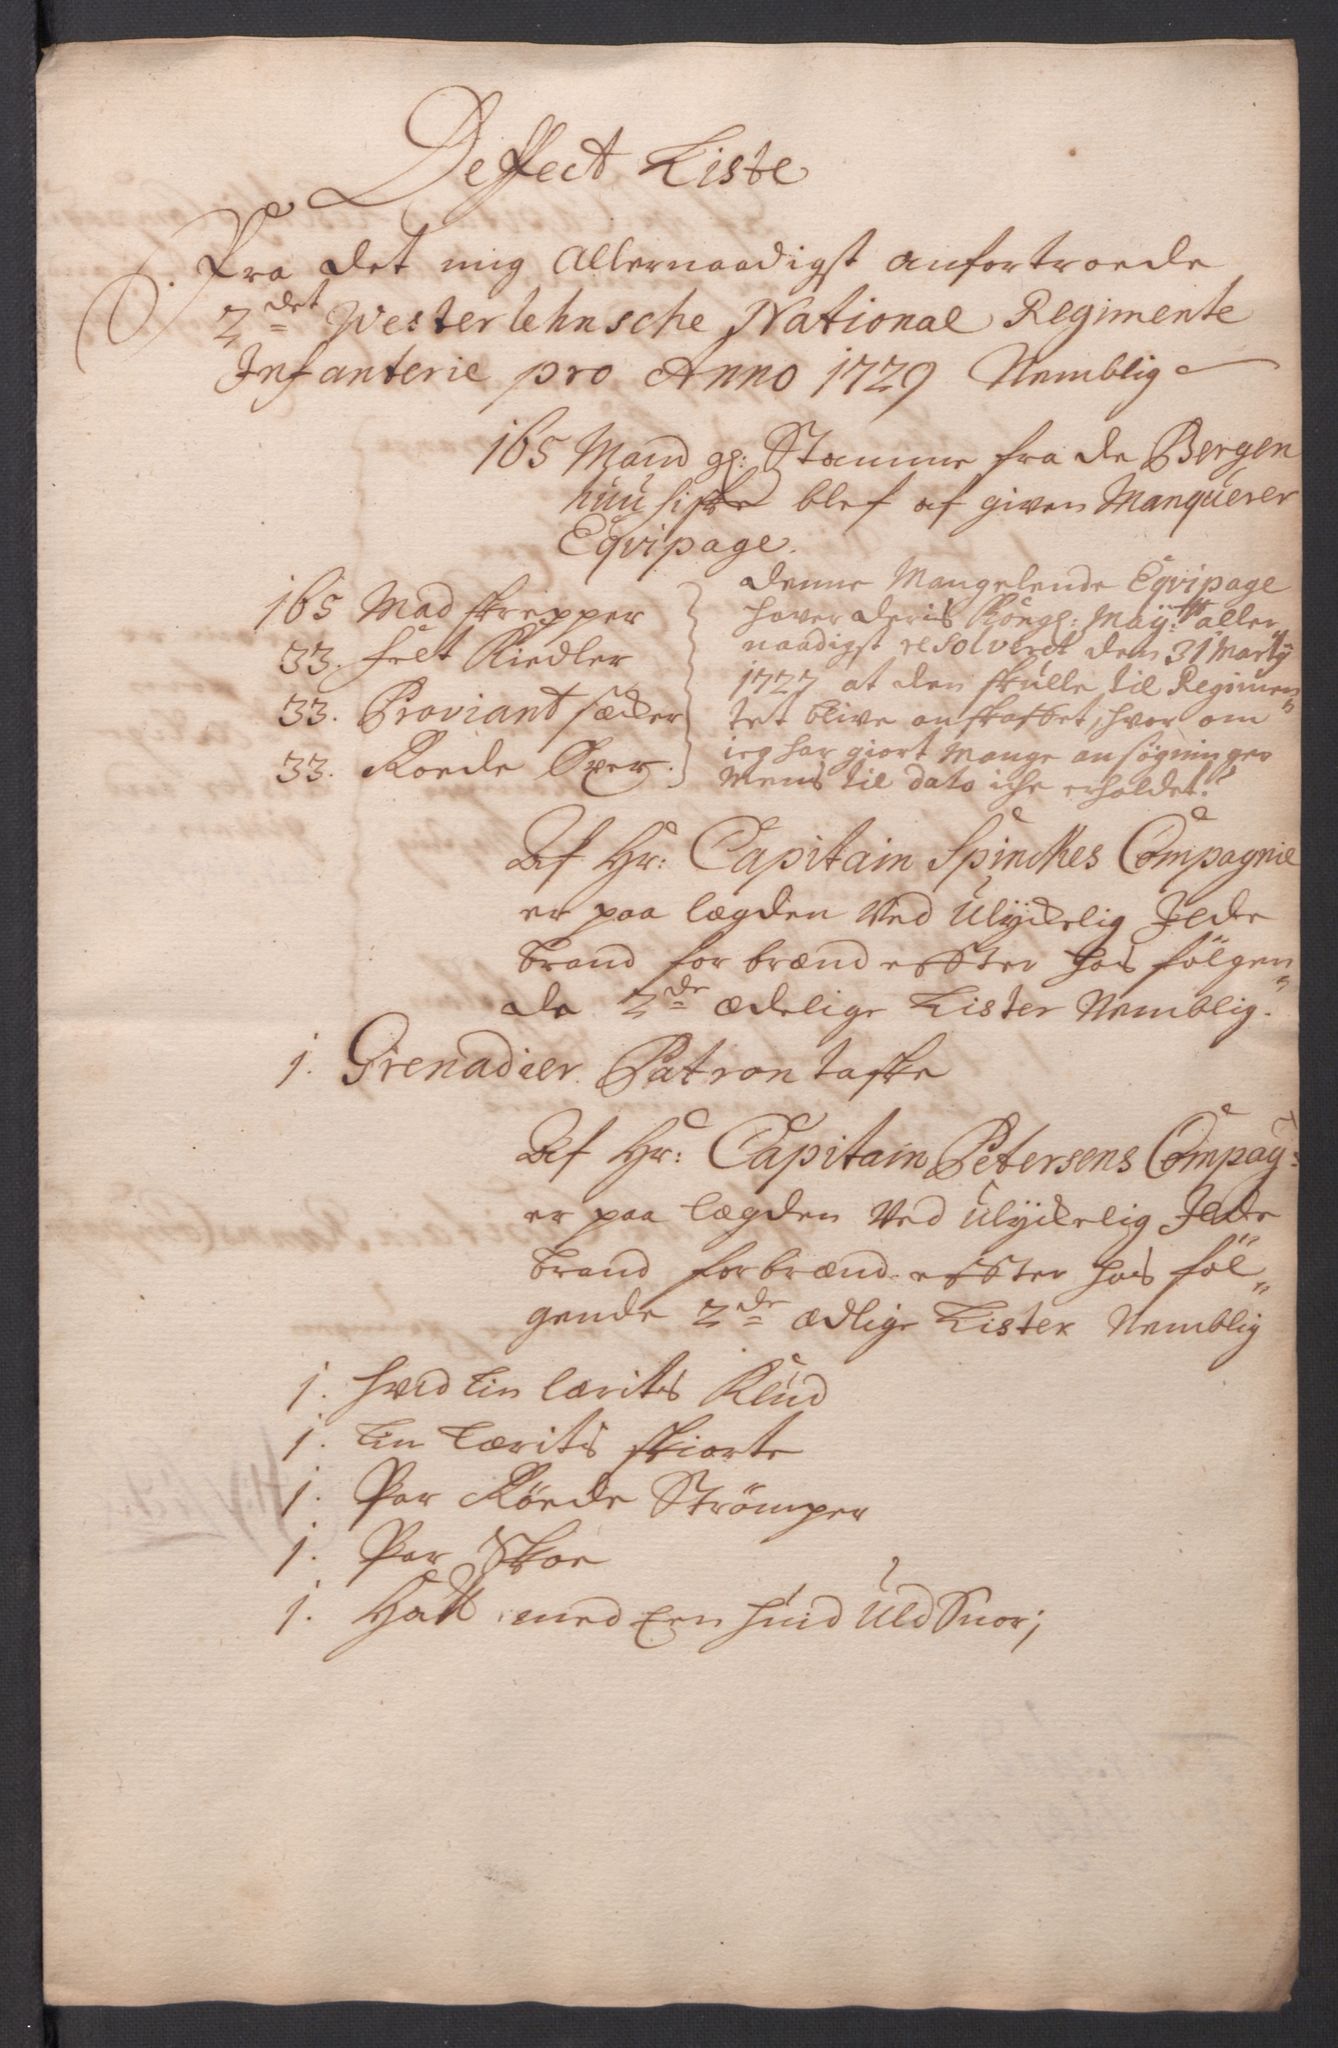 Deffect Liste
Fra det mig allernaadigst anfortroede
2det Westerlehnsche National Regimente
Infanterie pro Anno 1729 Nemblig
165 Mand gl: Stamme fra de Bergen
huusiske blef af given Manquerer
Eqvipage.
165 Mad skrepper
33. felt Kiedler
33. Proviant sæcker
33. Roede Öxer.
denne Mangelende Eqvipage
haver deris Kongl: May:tt aller
naadigst resolveret den 31 Marty
1727 at den skulle til Regimen
tet blive anskaffet, hvor om
ieg har giort Mange ansøgninger
Mens til dato iche erholdet.
Af Hr: Capitain Spinckes Compagnie
er paa lægden Ved Ulyckelig Ilde
brand for brænd effter hos fölgen
de 2de ædelige Lister Nemblig.
1. Grenadier Patron taske
Af Hr: Capitain Petersens Compag:
er paa lægden Ved Ulyckelig Ilde
brand forbrænd effter hos föl
gende 2de ædlige Lister Nemblig
1. hvid Lin lærits Klud
1. Lin Lærits skiorte
1. Par Röede Strömper
1. Par Skoe
1. Hatt med Een hvid Uld Snor;